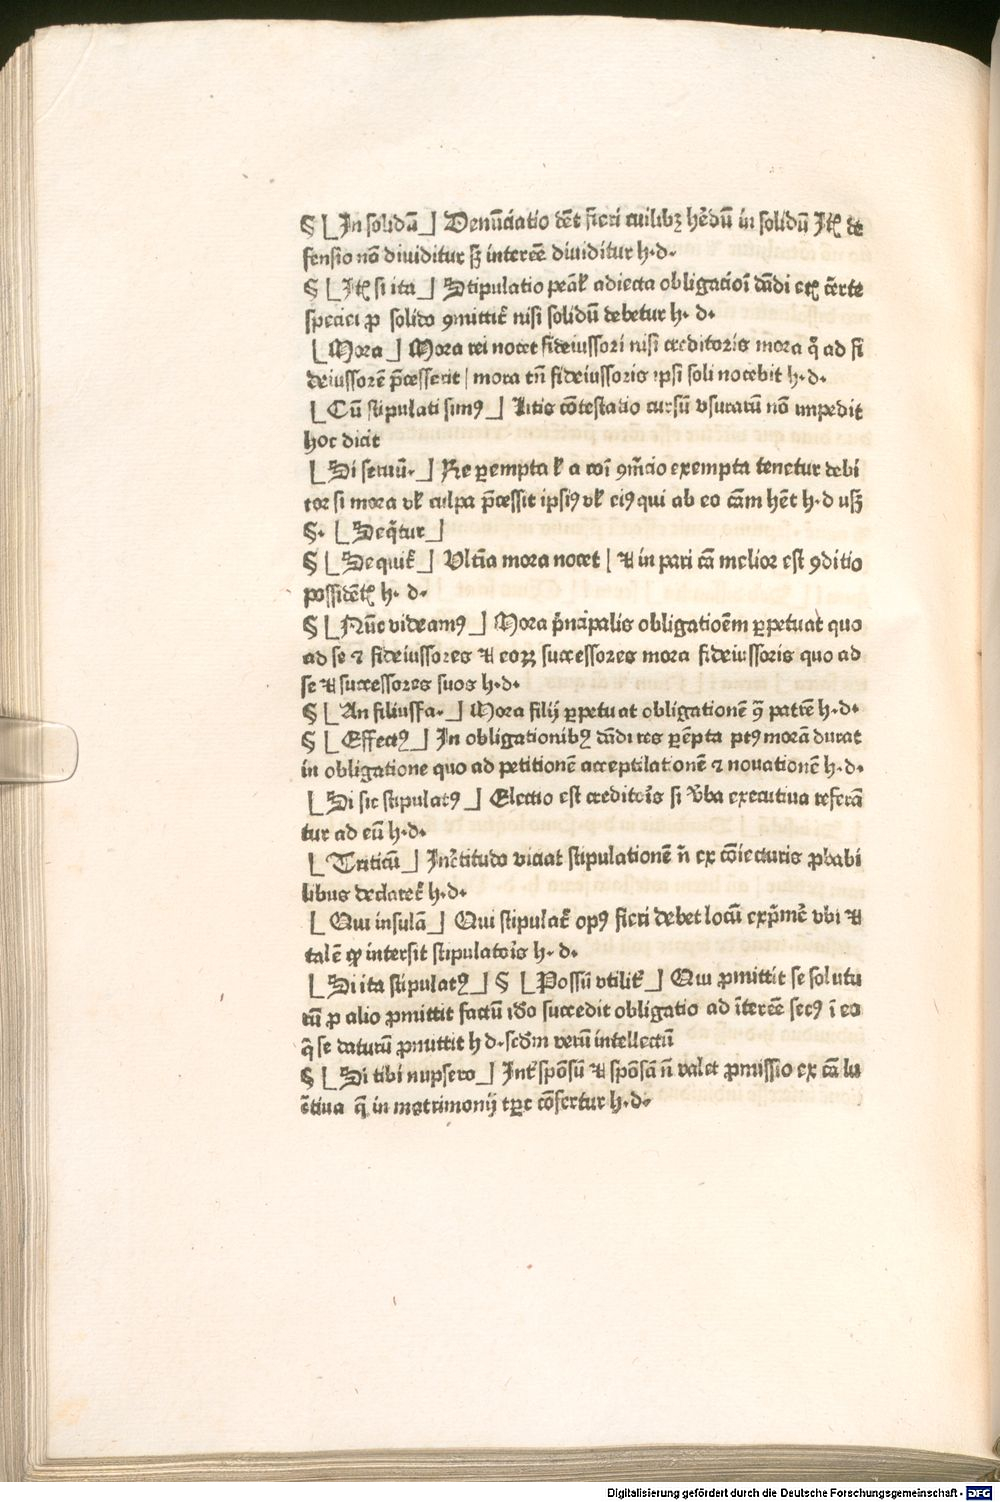 § ⌊In solidū⌋ Denūciatio dēt fieri cuilibꝫ hēdū in solidū Itē de
fensio nō diuiditur sꝫ intereē diuiditur h·d·
§ ⌊Itē si ita⌋ Stipulatio penaƚ adiecta obligatiōi dādi certe
speciei ꝓ solido ꝯmittit̄ nisi solidū debetur h· d·
⌊Mora⌋ Mora rei nocet fideiussori nisi creditoris mora q̄ ad fi
deiussorē p̄cesserit | mora tn̄ fideiussoris ipsi soli nocebit h·d·
⌊Cū stipulati simꝰ⌋ Litis cōtestatio cursū vsurarū nō impedit
hoc dicit
⌊Si seruū·⌋ Re ꝑempta ƚ a cōi ꝯmcio exempta tenetur debi
tor si mora vƚ culpa p̄cessit ipsiꝰ vƚ eiꝰ qui ab eo cām hēt h·d usꝫ
§· ⌊Seq̄tur⌋
§ ⌊Sequit̄⌋ Vltīa mora nocet | ⁊ in pari cā melior est ꝯditio
possidētꝭ h· d·
§ ⌊Nūc videamꝰ⌋ Mora p̄ncipalis obligatioēm ꝑpetuat quo
ad se ⁊ fideiussores ⁊ eoꝝ successores mora fideiussoris quo ad
se ⁊ successores suos h·d·
§ ⌊An filiusfa·⌋ Mora filij ꝑpetuat obligationē ꝯ̄ patrē h·d·
§ ⌊Effectꝰ⌋ In obligationibꝰ dādi res ꝑēpta ptꝰ morā durat
in obligatione quo ad petitionē acceptilationē ⁊ nouationē h·d·
⌊Si sic stipulatꝰ⌋ Electio est creditoīs si v̄ba executiua referā
tur ad eū h·d·
⌊Triticū⌋ Inc̄titudo viciat stipulationē n̄ ex cōiecturis ꝓbabi
libus declaret̄ h·d·
⌊Qui insulā⌋ Qui stipulat̄ opꝰ fieri debet locū exp̄mē vbi ⁊
talē ꝙ intersit stipulatoīs h· d·
⌊Si ita stipulatꝰ⌋ § ⌊Possū vtilit̄⌋ Qui ꝓmittit se solutu
rū ꝓ alio ꝓmittit factū iđo succedit obligatio ad īterēe secꝰ ī eo
q̄ se daturū ꝓmittit h d· scđm verū intellectū
§ ⌊Si tibi nupsero⌋ Int̄ spōsū ⁊ spōsā n̄ valet ꝓmissio ex cā lu
c̄tiua q̄ in matrimonij tꝑe cōfertur h·d·
Digitalisierung gefördert durch die Deutsche Forschungsgemeinschaft - DFG